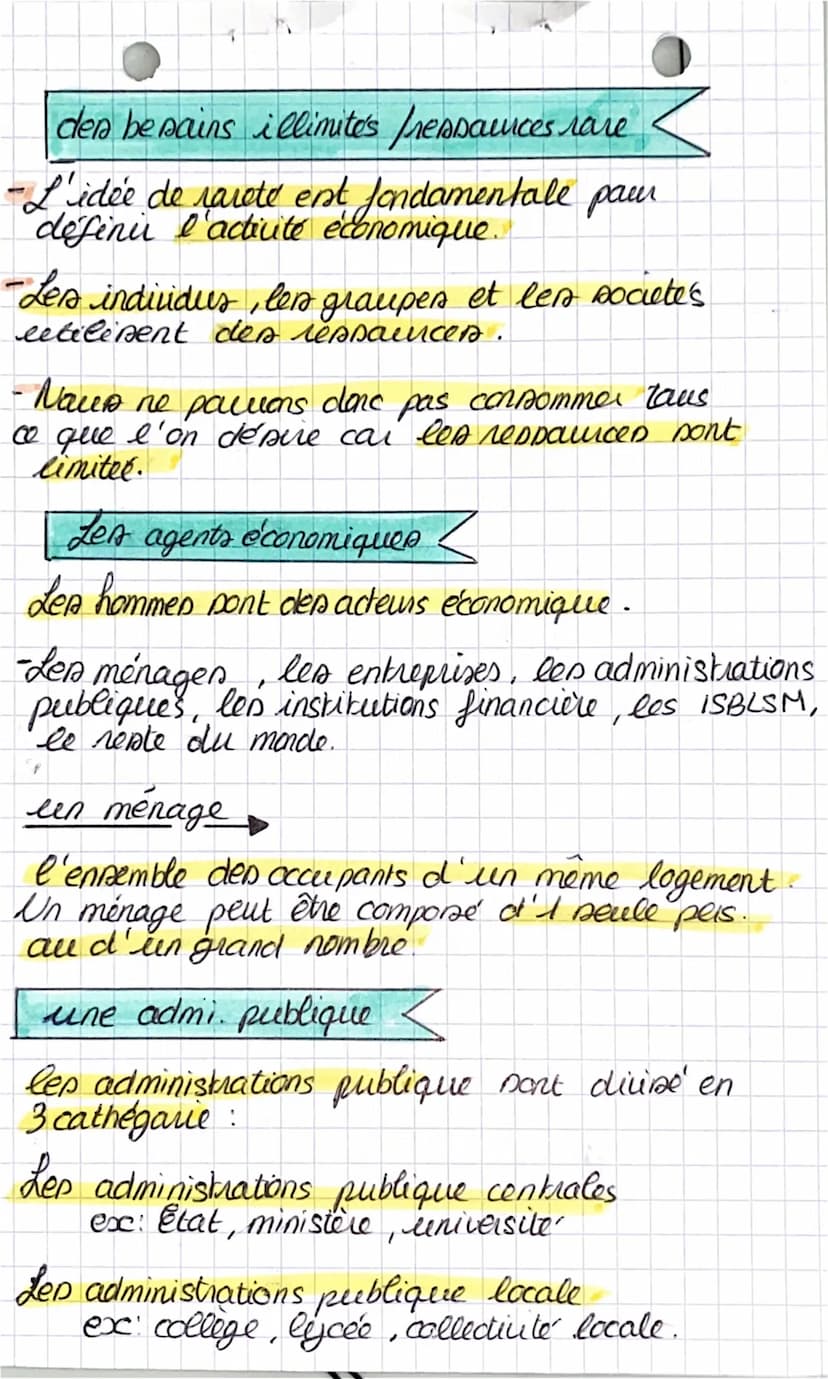 des besoins illimités / ressources rare
- L'idée de rareté est fondamentale pour
définir l'activité économique.
- Les individus, les groupes et les sociétés
utilisent des ressources.
- Nous ne pouvons donc pas consommer tous
ce que l'on désire car les ressources sont
limités.
Les agents économiques
Les hommes sont des acteurs économique.
- Les ménages, les entreprises, les administrations
publiques, les institutions financière, les ISBLSM,
le reste du monde.
un ménage
l'ensemble des occupants d'un même logement.
Un ménage peut être composé d'1 seule pers.
ou d'un grand nombre.
une admi. publique
les administrations publique sont divisé en
3 cathégorie :
Les administrations publique centrales
ex: État, ministère, université
Les administrations publique locale
ex: collège, lycée, collectivité locale.